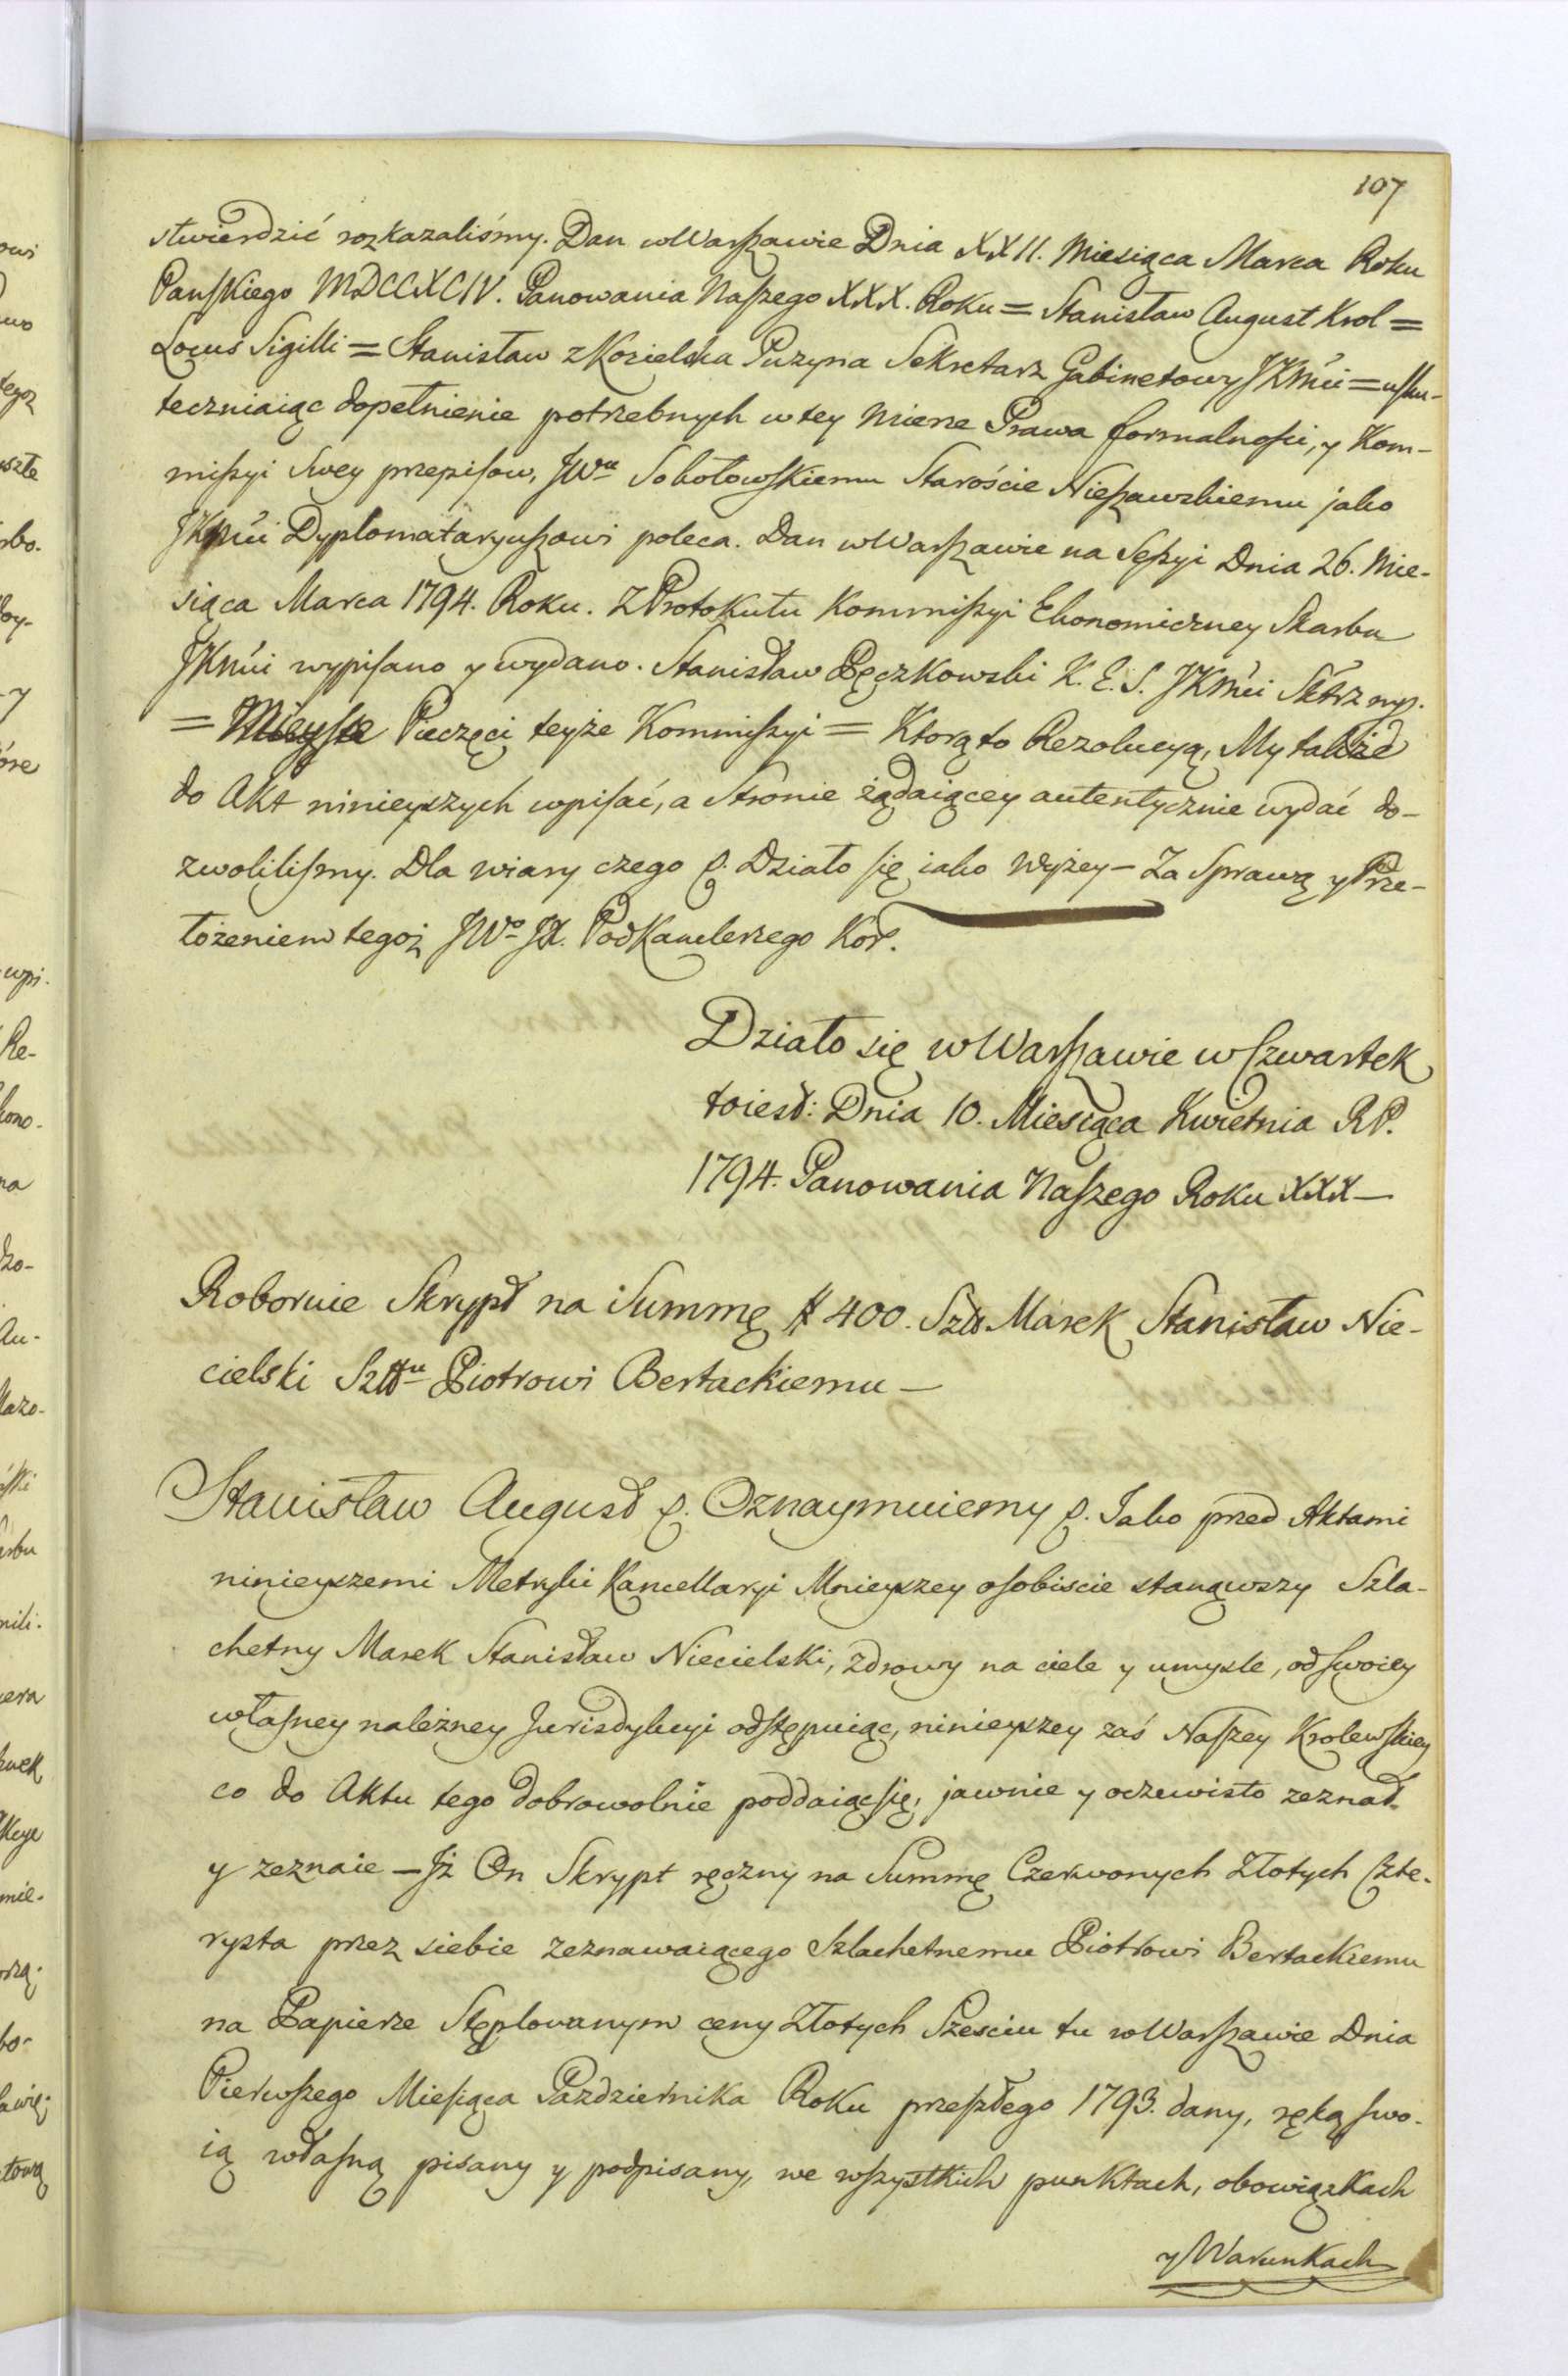 107
stwierdzić rozkazaliśmy. Dan w Warszawie Dnia XXII. Miesiąca Marca Roku
Pańskiego MDCCXCIV. Panowania Naszego XXX. Roku = Stanisław August Krol =
Locus Sigilli = Stanisław z Kozielska Puzyna Sekretarz Gabinetowy JKMći = usku-
teczniaiąc dopełnienie potrzebnych w tey mierze Prawa formalności, y Kom-
missyi Swey przepisow, JWu Sobolowskiemu Staroście Nieszawskiemu jako
JKMći Dyplomataryuszowi poleca. Dan w Warszawie na Sessyi Dnia 26. Mie-
siąca Marca 1794. Roku. Z Protokułu Kommissyi Ekonomiczney Skarbu
JKMći wypisano y wydano. Stanisław Pęczkowski K. E. S. JKMći Sktrz mp.
= Mieysce Pieczęci teyże Kommissyi = Ktorą to Rezolucyą, My także
do Akt ninieyszych wpisać, a Stronie żądaiącey autentycznie wydać do-
zwolilismy. Dla wiary czego &. Działo się iako wyżey — Za Sprawą y Prze-
łożeniem tegoż JWo JX. Podkanclerzego Kor.
Działo się w Warszawie w Czwartek
toiest: Dnia 10. Miesiąca Kwietnia RP.
1794. Panowania Naszego Roku XXX —
Roboruie Skrypt na Summę # 400. Szltt Marek Stanisław Nie-
cielski Szlttu Piotrowi Bertackiemu —
Stanisław August &. Oznaymuiemy &. Iako przed Aktami
ninieyszemi Metryki Kancellaryi Mnieyszey osobiscie stanąwszy Szla-
chetny Marek Stanisław Niecielski, zdrowy na ciele y umysle, od swoiey
własney należney Jurisdykcyi odstępuiąc, ninieyszey zaś Naszey Krolewskiey
co do Aktu tego dobrowolnie poddaiąc się, jawnie y oczewisto zeznał
y zeznaie — Jż On Skrypt ręczny na Summę Czerwonych Złotych Czte-
rysta przez siebie zeznawaiącego Szlachetnemu Piotrowi Bertackiemu
na Papierze Stęplowanym ceny Złotych Szesciu tu w Warszawie Dnia
Pierwszego Miesiąca Pazdziernika Roku przeszłego 1793. dany, ręką swo-
ią własną pisany y podpisany, we wszystkich punktach, obowiązkach
y Warunkach